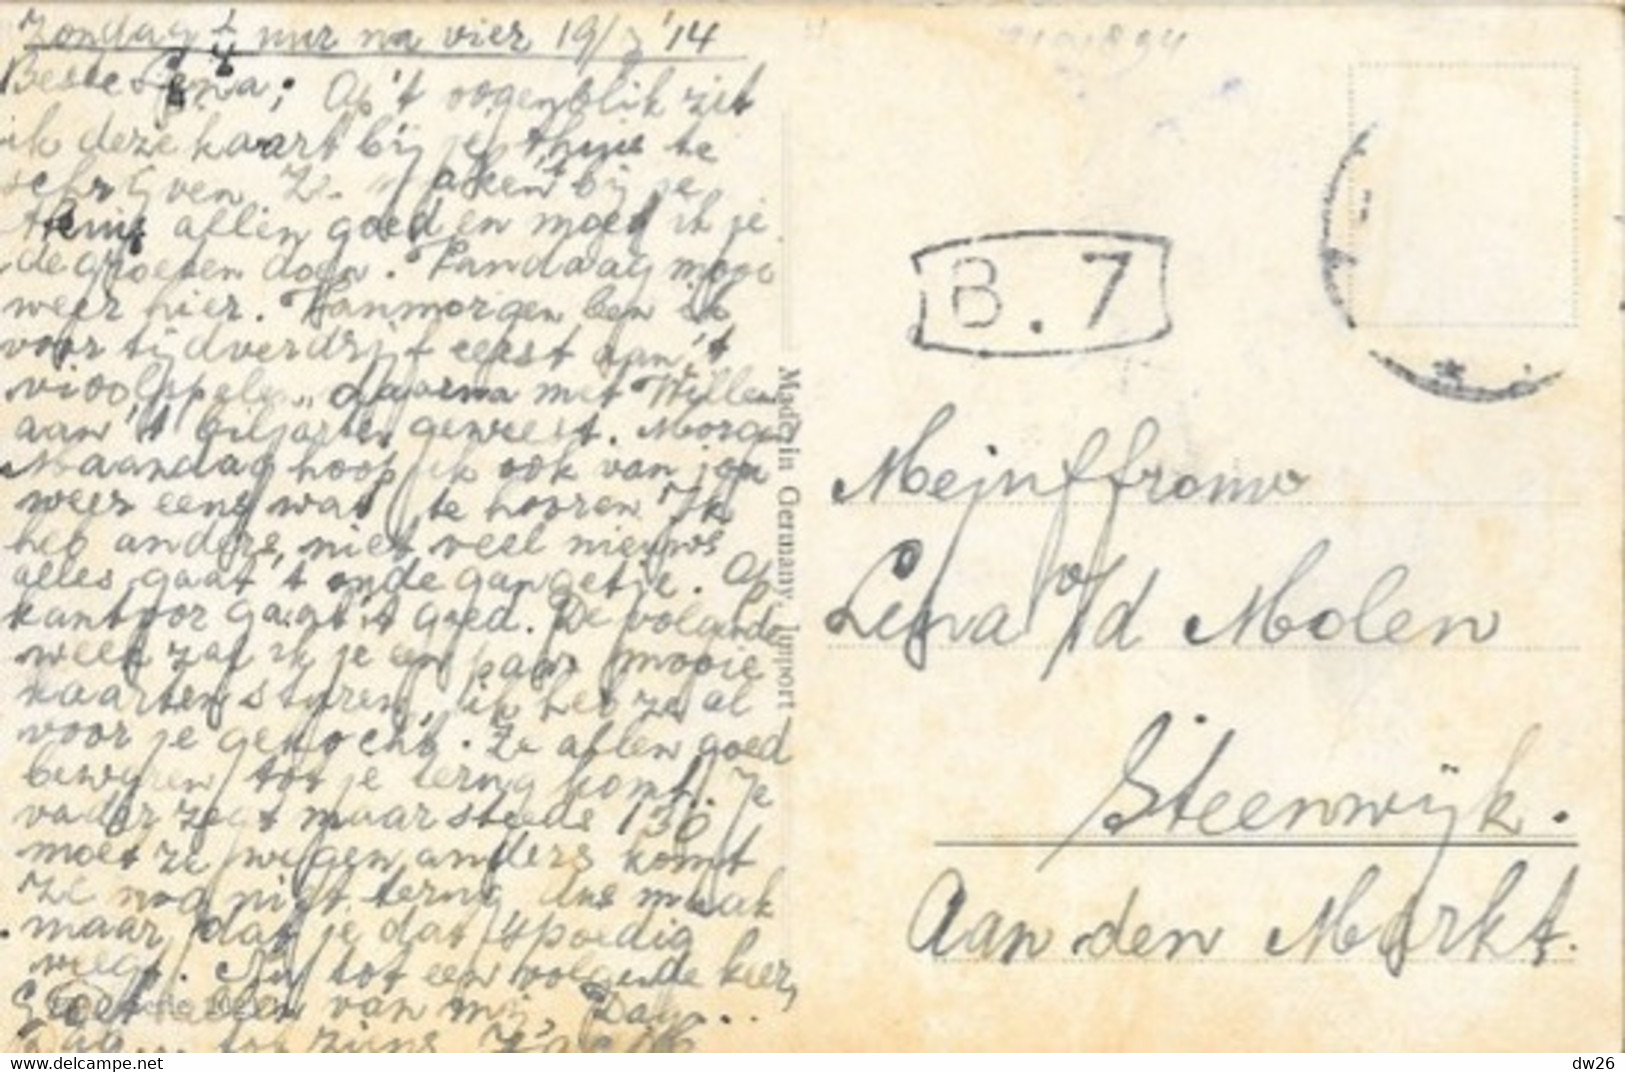 Zondag ½ uur na vier 19/ '14
Beste Lena; Op 't oogenblik zit
ik deze kaart bij je thuis te
schrijven Ze maken 't bij je
thuis allen goed en moet ik je
de groeten doen. Vandaag mooi
weer hier. Vanmorgen ben ik
voor tijdverdrijf eerst aan 't
vioolspelen, daarna met Willem
aan 't biljarten geweest. Morgen
Maandag hoop ik ook van jou
weer eens wat te hooren Ik
heb anders niet veel nieuws
alles gaat 't oude gangetje. Op
kantoor gaat 't goed. De volgende
week zal ik je een paar mooie
kaarten sturen, ik heb ze al
voor je gekocht. Ze allen goed
bewaren tot je terug komt. Je
vader zegt maar steeds 130
moet ze wegen anders komt
ze nog niet terug dus maak
maar dat je dat spoedig
weegt. Nu tot een volgende keer,
Groet allen van mij, Dag...
Dag... tot ziens
Made in Germany Import
B.7
Mejuffrouw
Lena v/d Molen
Steenwijk.
Aan den Markt.
delcampe.net
dw26